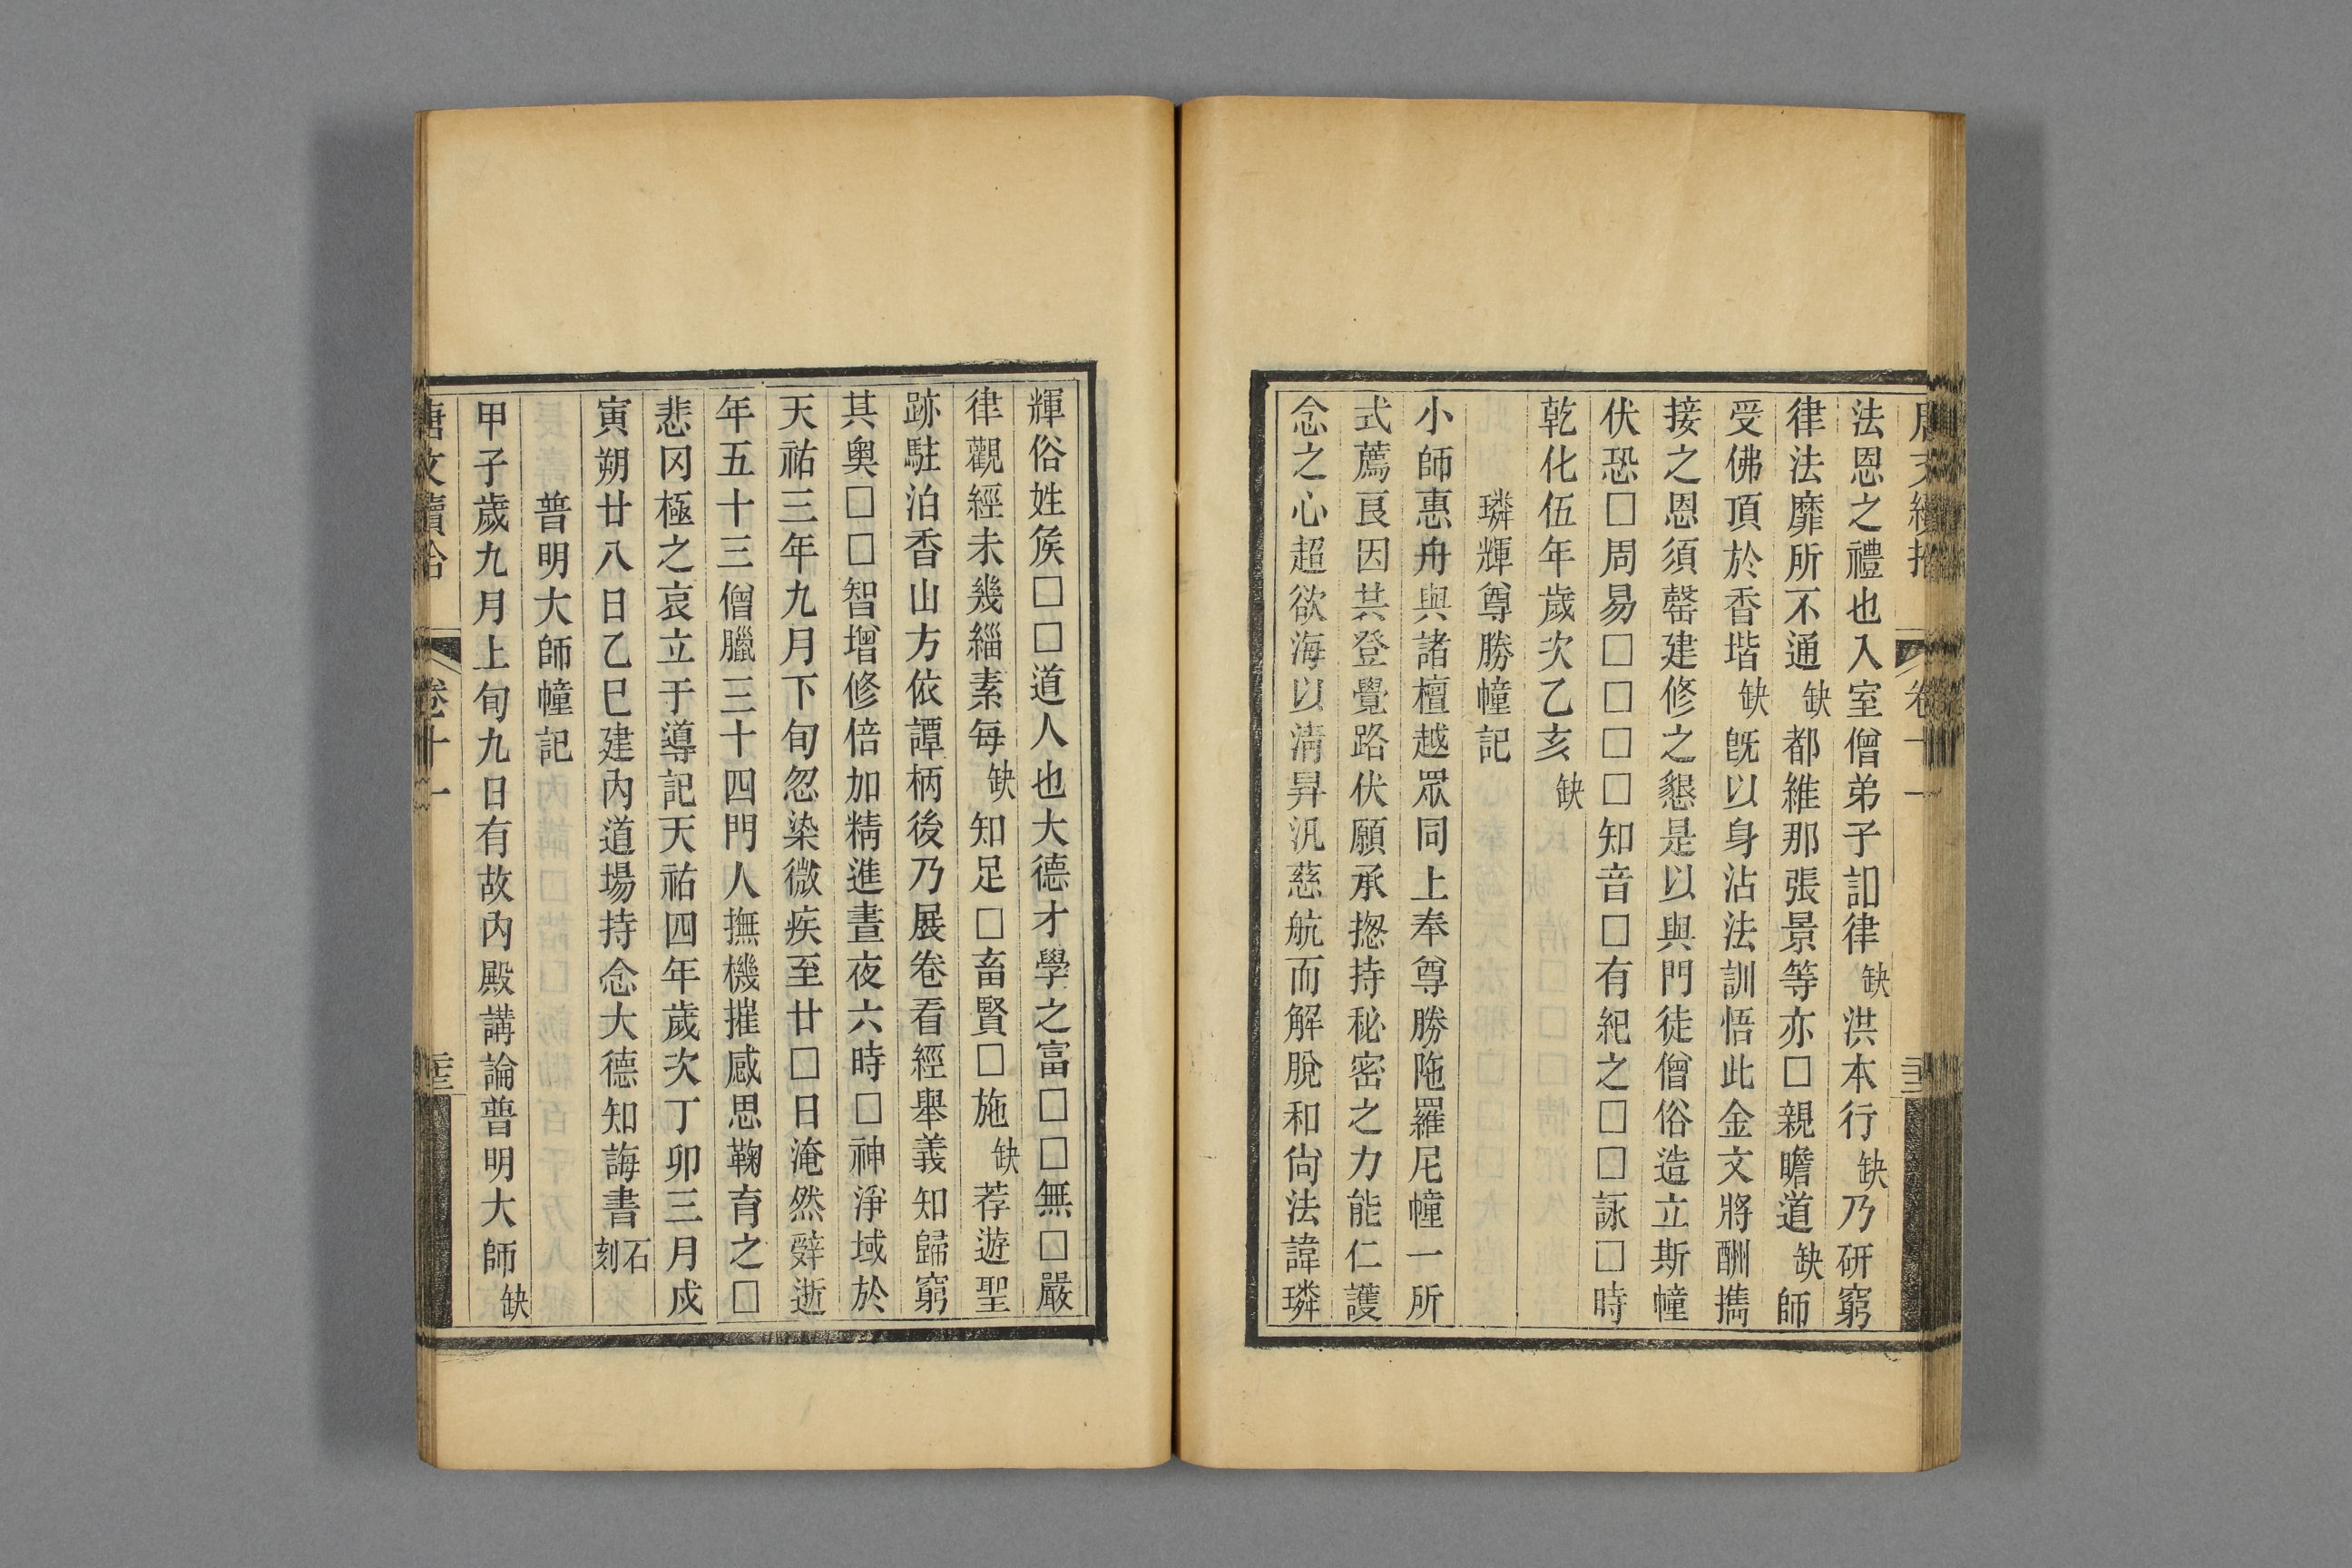 法恩之禮也入室僧弟子訒律缺洪本行缺乃研窮
律法靡所不通缺都維那張景等亦□親瞻道缺師
受佛頂於香堦缺旣以身沾法訓悟此金文將酬擕
接之恩須罄建修之懇是以與門徒僧俗造立斯幢
伏恐□周易□□□□知音□有紀之□□詠□時
乾化伍年歲次乙亥缺
璘輝尊勝幢記
小師惠舟與諸檀越眾同上奉尊勝陁羅尼幢一所
式薦良因共登覺路伏願承揔持秘密之力能仁護
念之心超欲海以淸昇汎慈航而解脫和尙法諱璘
輝俗姓矦□□道人也大德才學之富□□無□嚴
律觀經未幾緇素每缺知足□畜賢□施缺荐遊聖
跡駐泊香山方依譚柄後乃展卷看經舉義知歸窮
其奧□□智增修倍加精進晝夜六時□神淨域於
天祐三年九月下旬忽染微疾至廿□日淹然辤逝
年五十三僧臘三十四門人撫機摧感思鞠育之□
悲罔極之哀立于導記天祐四年歲次丁卯三月戍
寅朔廿八日乙巳建內道場持念大德知誨書石刻
普明大師幢記
甲子歲九月上旬九日有故內殿講論普明大師缺
唐文續拾 卷十一